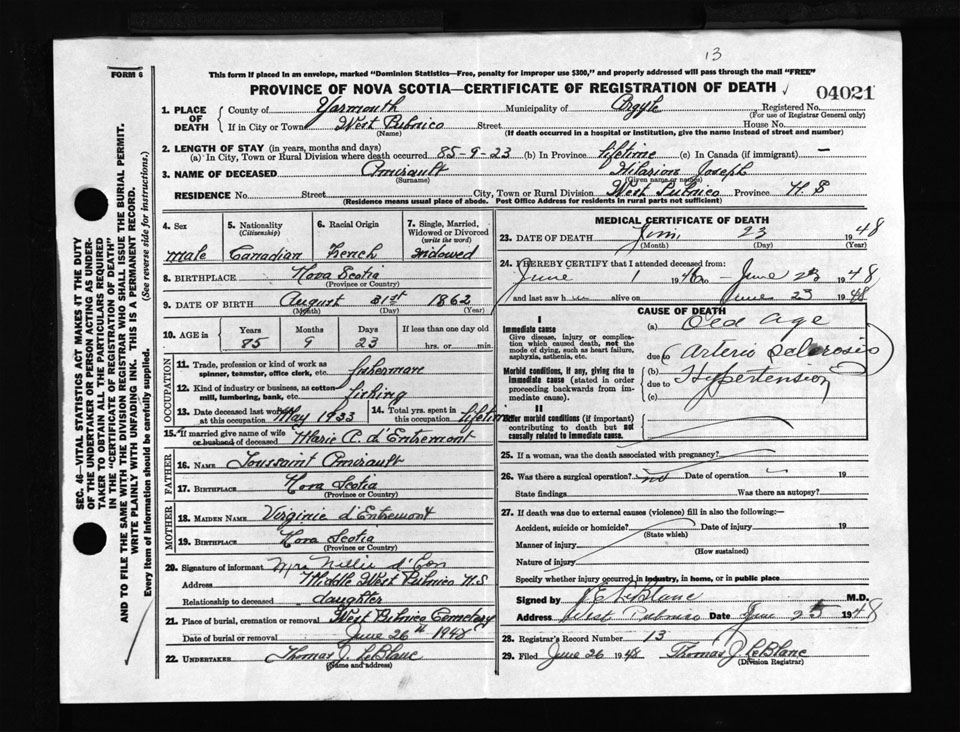 13
FORM 6
This form if placed in an envelope, marked "Dominion Statistics—Free, penalty for improper use $300," and properly addressed will pass through the mail "FREE"
PROVINCE OF NOVA SCOTIA—CERTIFICATE OF REGISTRATION OF DEATH
04021
1. PLACE OF DEATH
County of Yarmouth Municipality of Argyle Registered No.
(For use of Registrar General only)
If in City or Town West Pubnico Street House No.
(Name) (If death occurred in a hospital or institution, give the name instead of street and number)
2. LENGTH OF STAY (in years, months and days)
(a) In City, Town or Rural Division where death occurred 85-9-23 (b) In Province lifetime (c) In Canada (if immigrant) —
3. NAME OF DECEASED Amirault Hilarion Joseph
(Surname) (Given name or names)
RESIDENCE No. Street City, Town or Rural Division West Pubnico Province N.S
(Residence means usual place of abode. Post Office Address for residents in rural parts not sufficient)
4. Sex
male
5. Nationality
(Citizenship)
Canadian
6. Racial Origin
French
7. Single, Married, Widowed or Divorced
(write the word)
Widowed
8. BIRTHPLACE Nova Scotia
(Province or Country)
9. DATE OF BIRTH August 31st 1862
(Month) (Day) (Year)
10. AGE in Years Months Days If less than one day
85 9 23 hrs. or min.
OCCUPATION
11. Trade, profession or kind of work as
spinner, teamster, office clerk, etc. fisherman
12. Kind of industry or business, as cotton
mill, lumbering, bank, etc. fishing
13. Date deceased last worked
at this occupation May 1933
14. Total yrs. spent in
this occupation lifetime
15. If married give name of wife
or husband of deceased Marie A. d'Entremont
FATHER
16. NAME Toussaint Amirault
17. BIRTHPLACE Nova Scotia
(Province or Country)
MOTHER
18. MAIDEN NAME Virginie d'Entremont
19. BIRTHPLACE Nova Scotia
(Province or Country)
20. Signature of informant Mrs Nillie d'Eon
Address Middle West Pubnico N.S
Relationship to deceased daughter
21. Place of burial, cremation or removal West Pubnico Cemetery
Date of burial or removal June 26th 1948
22. UNDERTAKER Thomas J. LeBlanc
(Name and address)
MEDICAL CERTIFICATE OF DEATH
23. DATE OF DEATH June 23 1948
(Month) (Day) (Year)
24. I HEREBY CERTIFY that I attended deceased from:
June 1 1946 to June 23 1948
and last saw him alive on June 23 1948
CAUSE OF DEATH
I
Immediate cause
Give disease, injury or complication which caused death, not the mode of dying, such as heart failure, asphyxia, asthenia, etc.
(a) Old Age
due to Arterio Sclerosis
Morbid conditions, if any, giving rise to immediate cause (stated in order proceeding backwards from immediate cause).
(b)
due to Hypertension
(c)
II
Other morbid conditions (if important) contributing to death but not causally related to immediate cause.
25. If a woman, was the death associated with pregnancy?
26. Was there a surgical operation? no Date of operation 19
State findings Was there an autopsy?
27. If death was due to external causes (violence) fill in also the following:—
Accident, suicide or homicide? Date of injury 19
(State which)
Manner of injury
(How sustained)
Nature of injury
Specify whether injury occurred in industry, in home, or in public place
Signed by LeBlanc M.D.
Address West Pubnico Date June 25 1948
28. Registrar's Record Number 13
29. Filed June 26 1948 Thomas J. LeBlanc
(Division Registrar)
SEC. 46—VITAL STATISTICS ACT MAKES IT THE DUTY
OF THE UNDERTAKER OR PERSON ACTING AS UNDER-
TAKER TO OBTAIN ALL THE PARTICULARS REQUIRED
IN THE "CERTIFICATE OF REGISTRATION OF DEATH"
AND TO FILE THE SAME WITH THE DIVISION REGISTRAR WHO SHALL ISSUE THE BURIAL PERMIT.
WRITE PLAINLY WITH UNFADING INK. THIS IS A PERMANENT RECORD.
Every item of information should be carefully supplied. (See reverse side for instructions.)